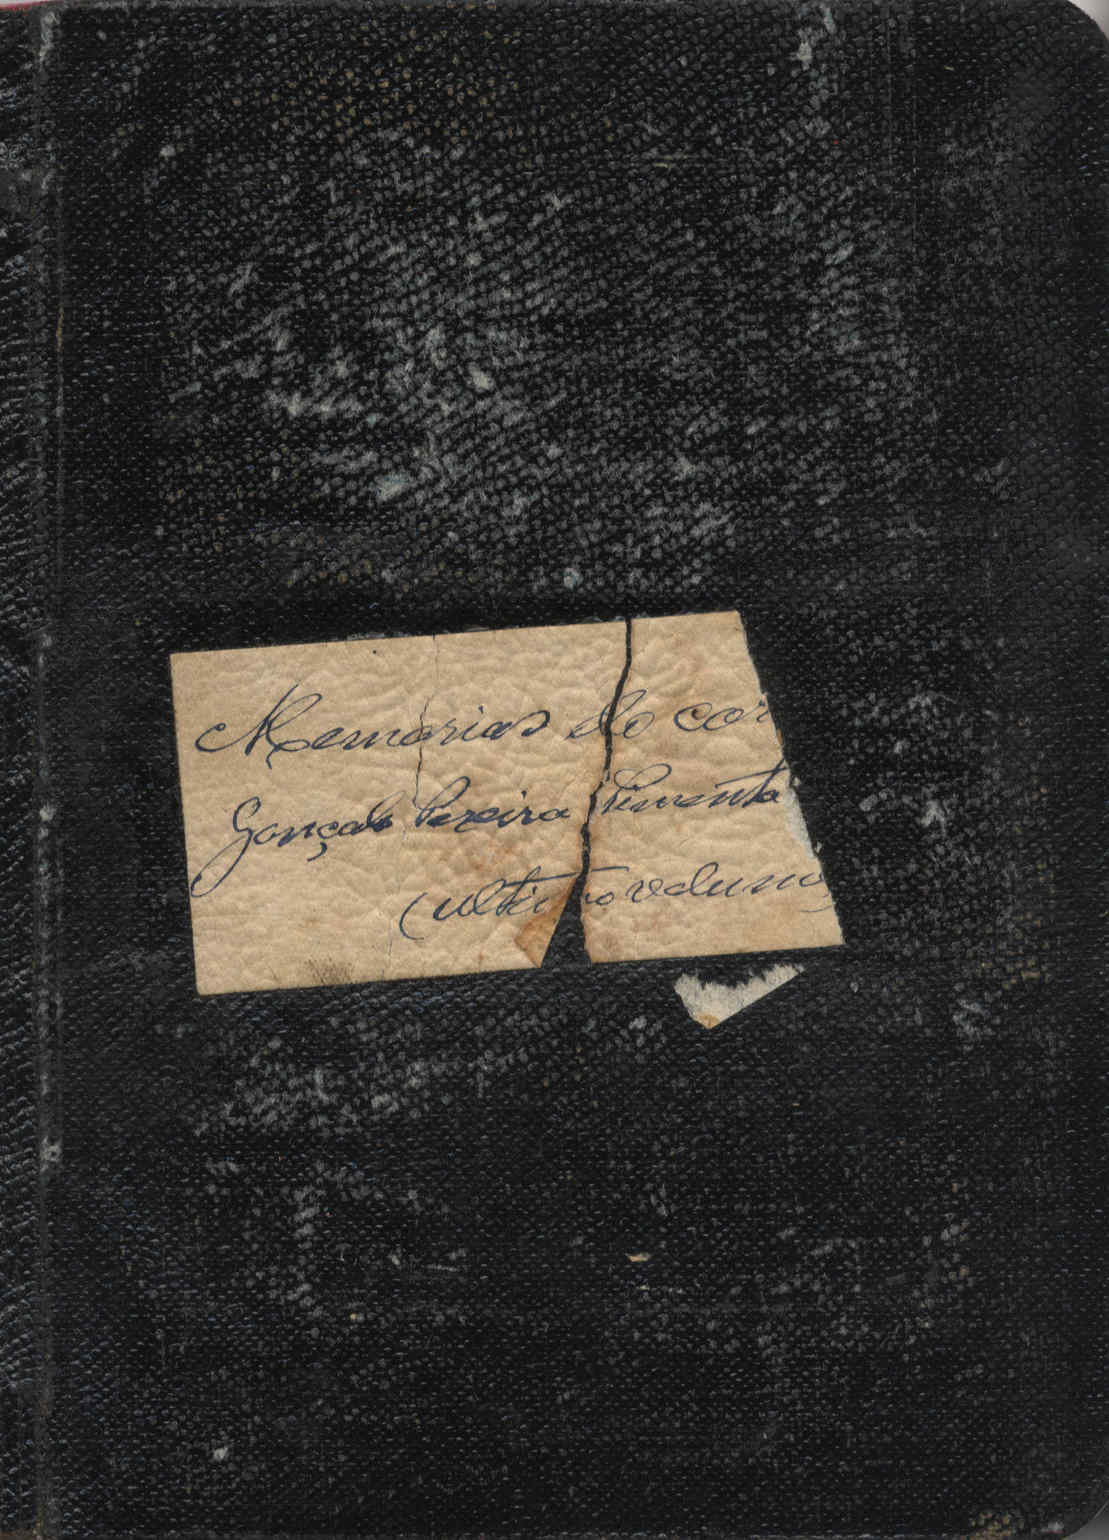 Memorias do cor
Gonçalo Pereira Pimenta
(ultimo volume